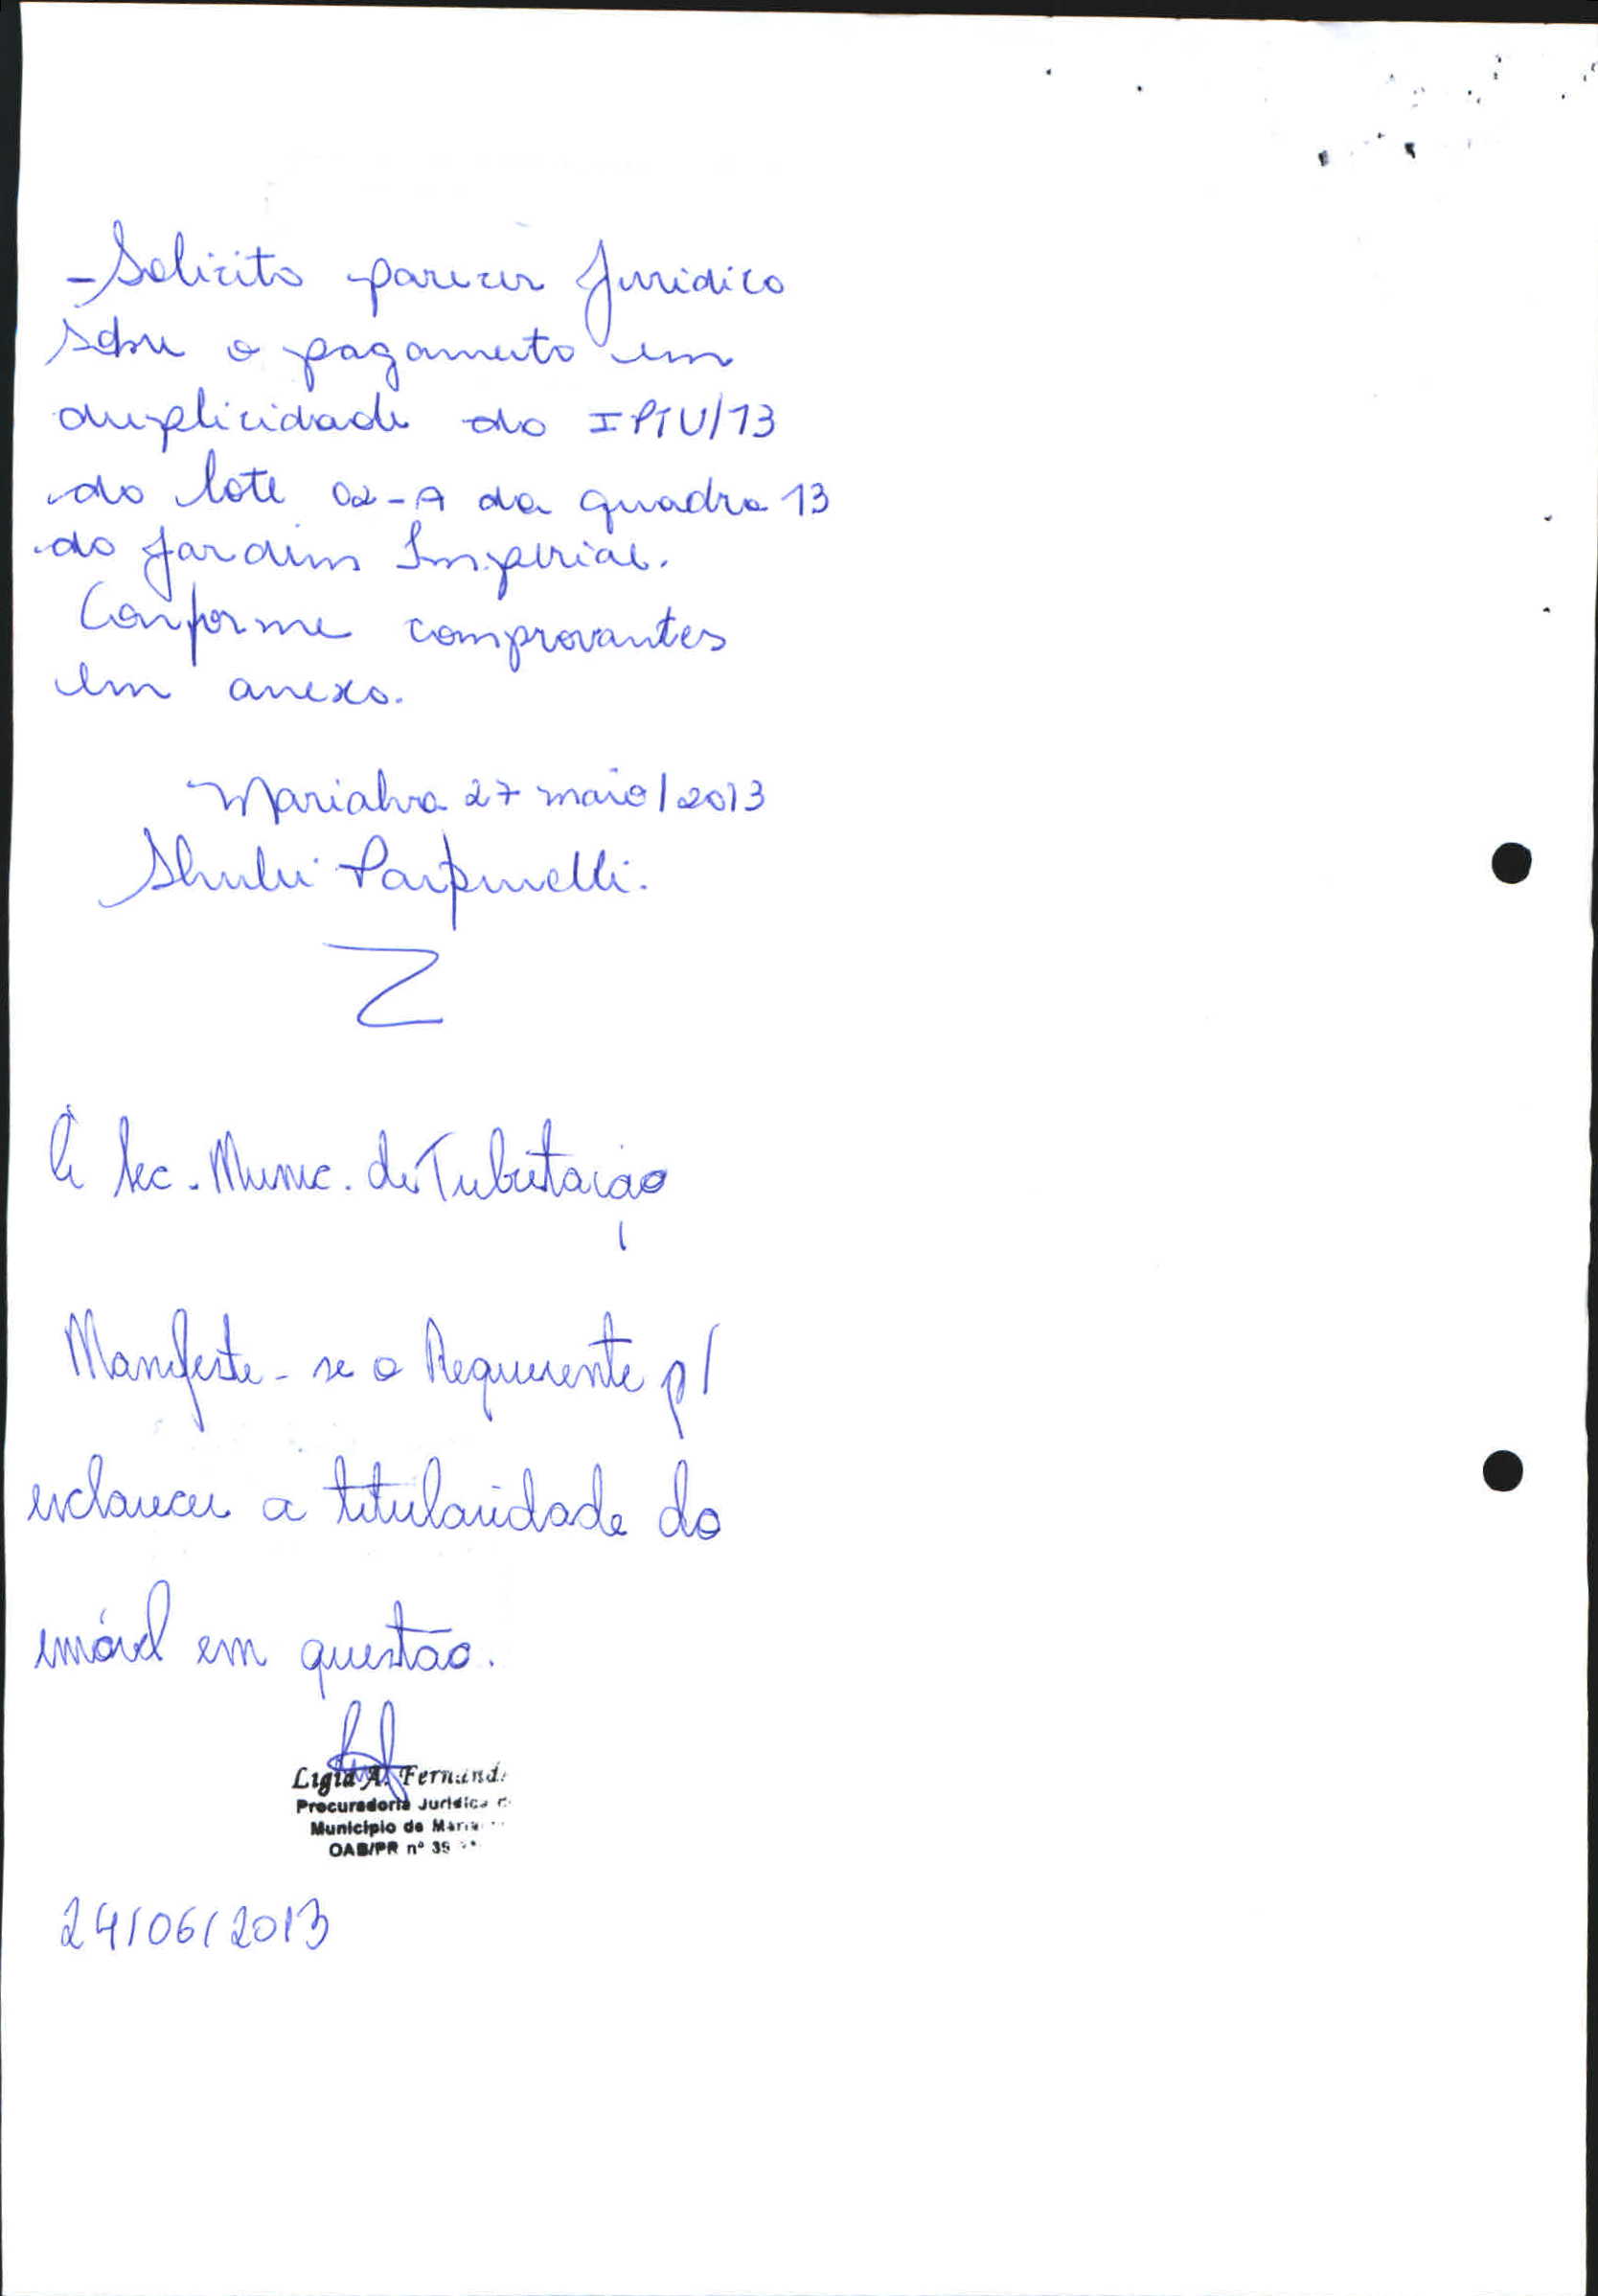 - Solicito parecer Jurídico
sobre o pagamento em
duplicidade do IPTU/13
do lote 02-A da quadra 13
do Jardim Imperial.
Conforme comprovantes
em anexo.
Marialva 27 maio/2013
Parpinelli.
À Sec. Munic. de Tributação
Manifeste-se o Requerente p/
esclarecer a titularidade do
imóvel em questão.
Ligia A.
Procuradoria Jurídica
Município de
OAB/PR nº
24/06/2013